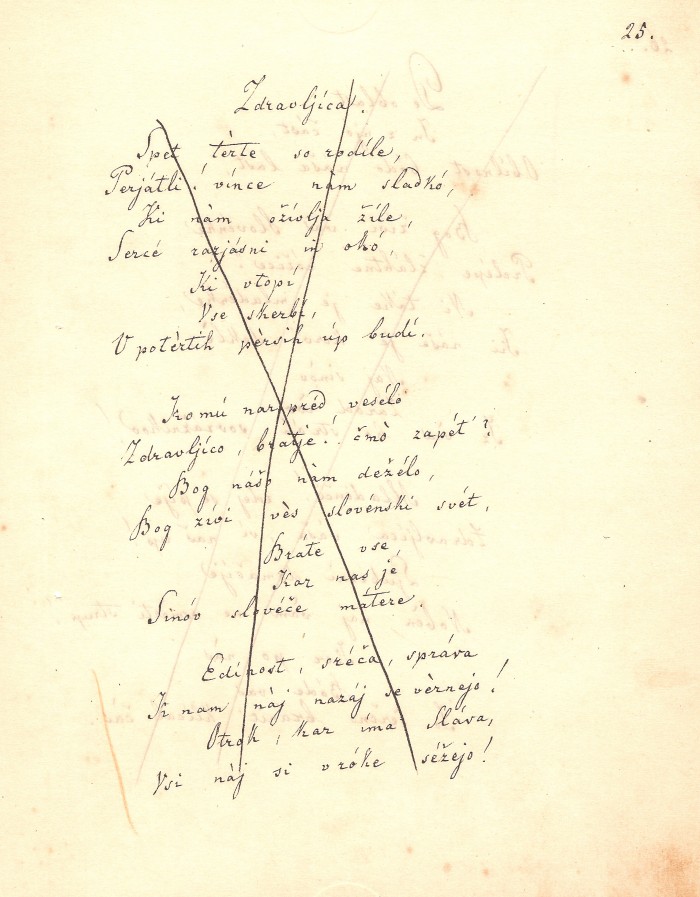 25.
Zdravljíca!
Spet tèrte so rodíle,
Perjátli! vínce nàm sladkó,
Ki nàm ožívlja žíle,
Sercé razjásni in okó,
Ki vtopí
Vse skerbí,
V potèrtih pèrsih úp budí.
Komú narpréd vesélo
Zdravljíco, brátje! čmò zapét'?
Bog nášo nàm deželo,
Bog zívi vès slovénski svét,
Bráte vse,
Kar nas je
Sinóv slovéče mátere.
Edínost, sréča, správa
K nam nàj nazáj se vèrnejo!
Otrok, kar íma Sláva,
Vsi nàj si v róke séžejo!